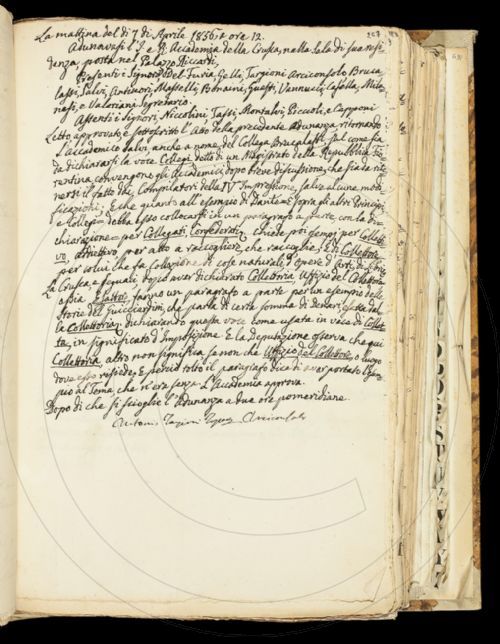 La mattina del dì 7 di Aprile 1856, a ore 12.
Adunavasi l'I. e R. Accademia della Crusca, nella Sala di sua resi-
denza, posta nel Palazzo Riccardi,
Presenti i Signori Del-Furia, Gelli, Targioni Arciconsolo Bruca-
lassi, Salvi, Antinori, Masselli, Bonaini, Guasti, Vannucci, Casella, Mila-
nesi, e Valeriani Segretario.
Assenti i Signori, Niccolini, Tassi, Montalvi, Piccioli, e Capponi
Letto approvato, e sottoscritto l'Atto della precedente Adunanza ritornando
l'Accademico Salvi, anche a nome del Collega Brucalassi, sul come sia
da dichiararsi la voce Collegi detto di un Magistrato della Repubblica Fio-
rentina, convengono gli Accademici, dopo breve discussione, che sia da rite-
nersi il fatto dai Compilatori della IV Impressione, salve alcune modi-
ficazioni; E che quanto all'esempio di Dante = E sopra gli altri Principi
e Collegi = debba esso collocarsi in un paragrafo a parte, con la di-
chiarazione = per Collegati, Confederati.
per colui che fa Collezione di cose naturali, o d'opere d'Arti, di
La Crusca, e seguaci dopo aver dichiarato Collettoria, Uffizio del Collettore
ossia Esattore, fanno un paragrafo a parte per un esempio delle
Storie del Guicciardini, che parla di certa somma di denari, esatta dal-
la Collettoria; dichiarando questa voce come usata in vece di Collet-
ta, in significato d'Imposizione. E la deputazione osserva che qui
Collettoria, altro non significa se non che Uffizio del Collettore, o luogo
dove esso risiede; E perciò tolto il paragrafo dica di aver portato l'esem-
pio al Tema, che n'era senza. L'Accademia approva.
Dopo di che si scioglie l'Adunanza a due ore pomeridiane.
Antonio Targioni Arciconsolo